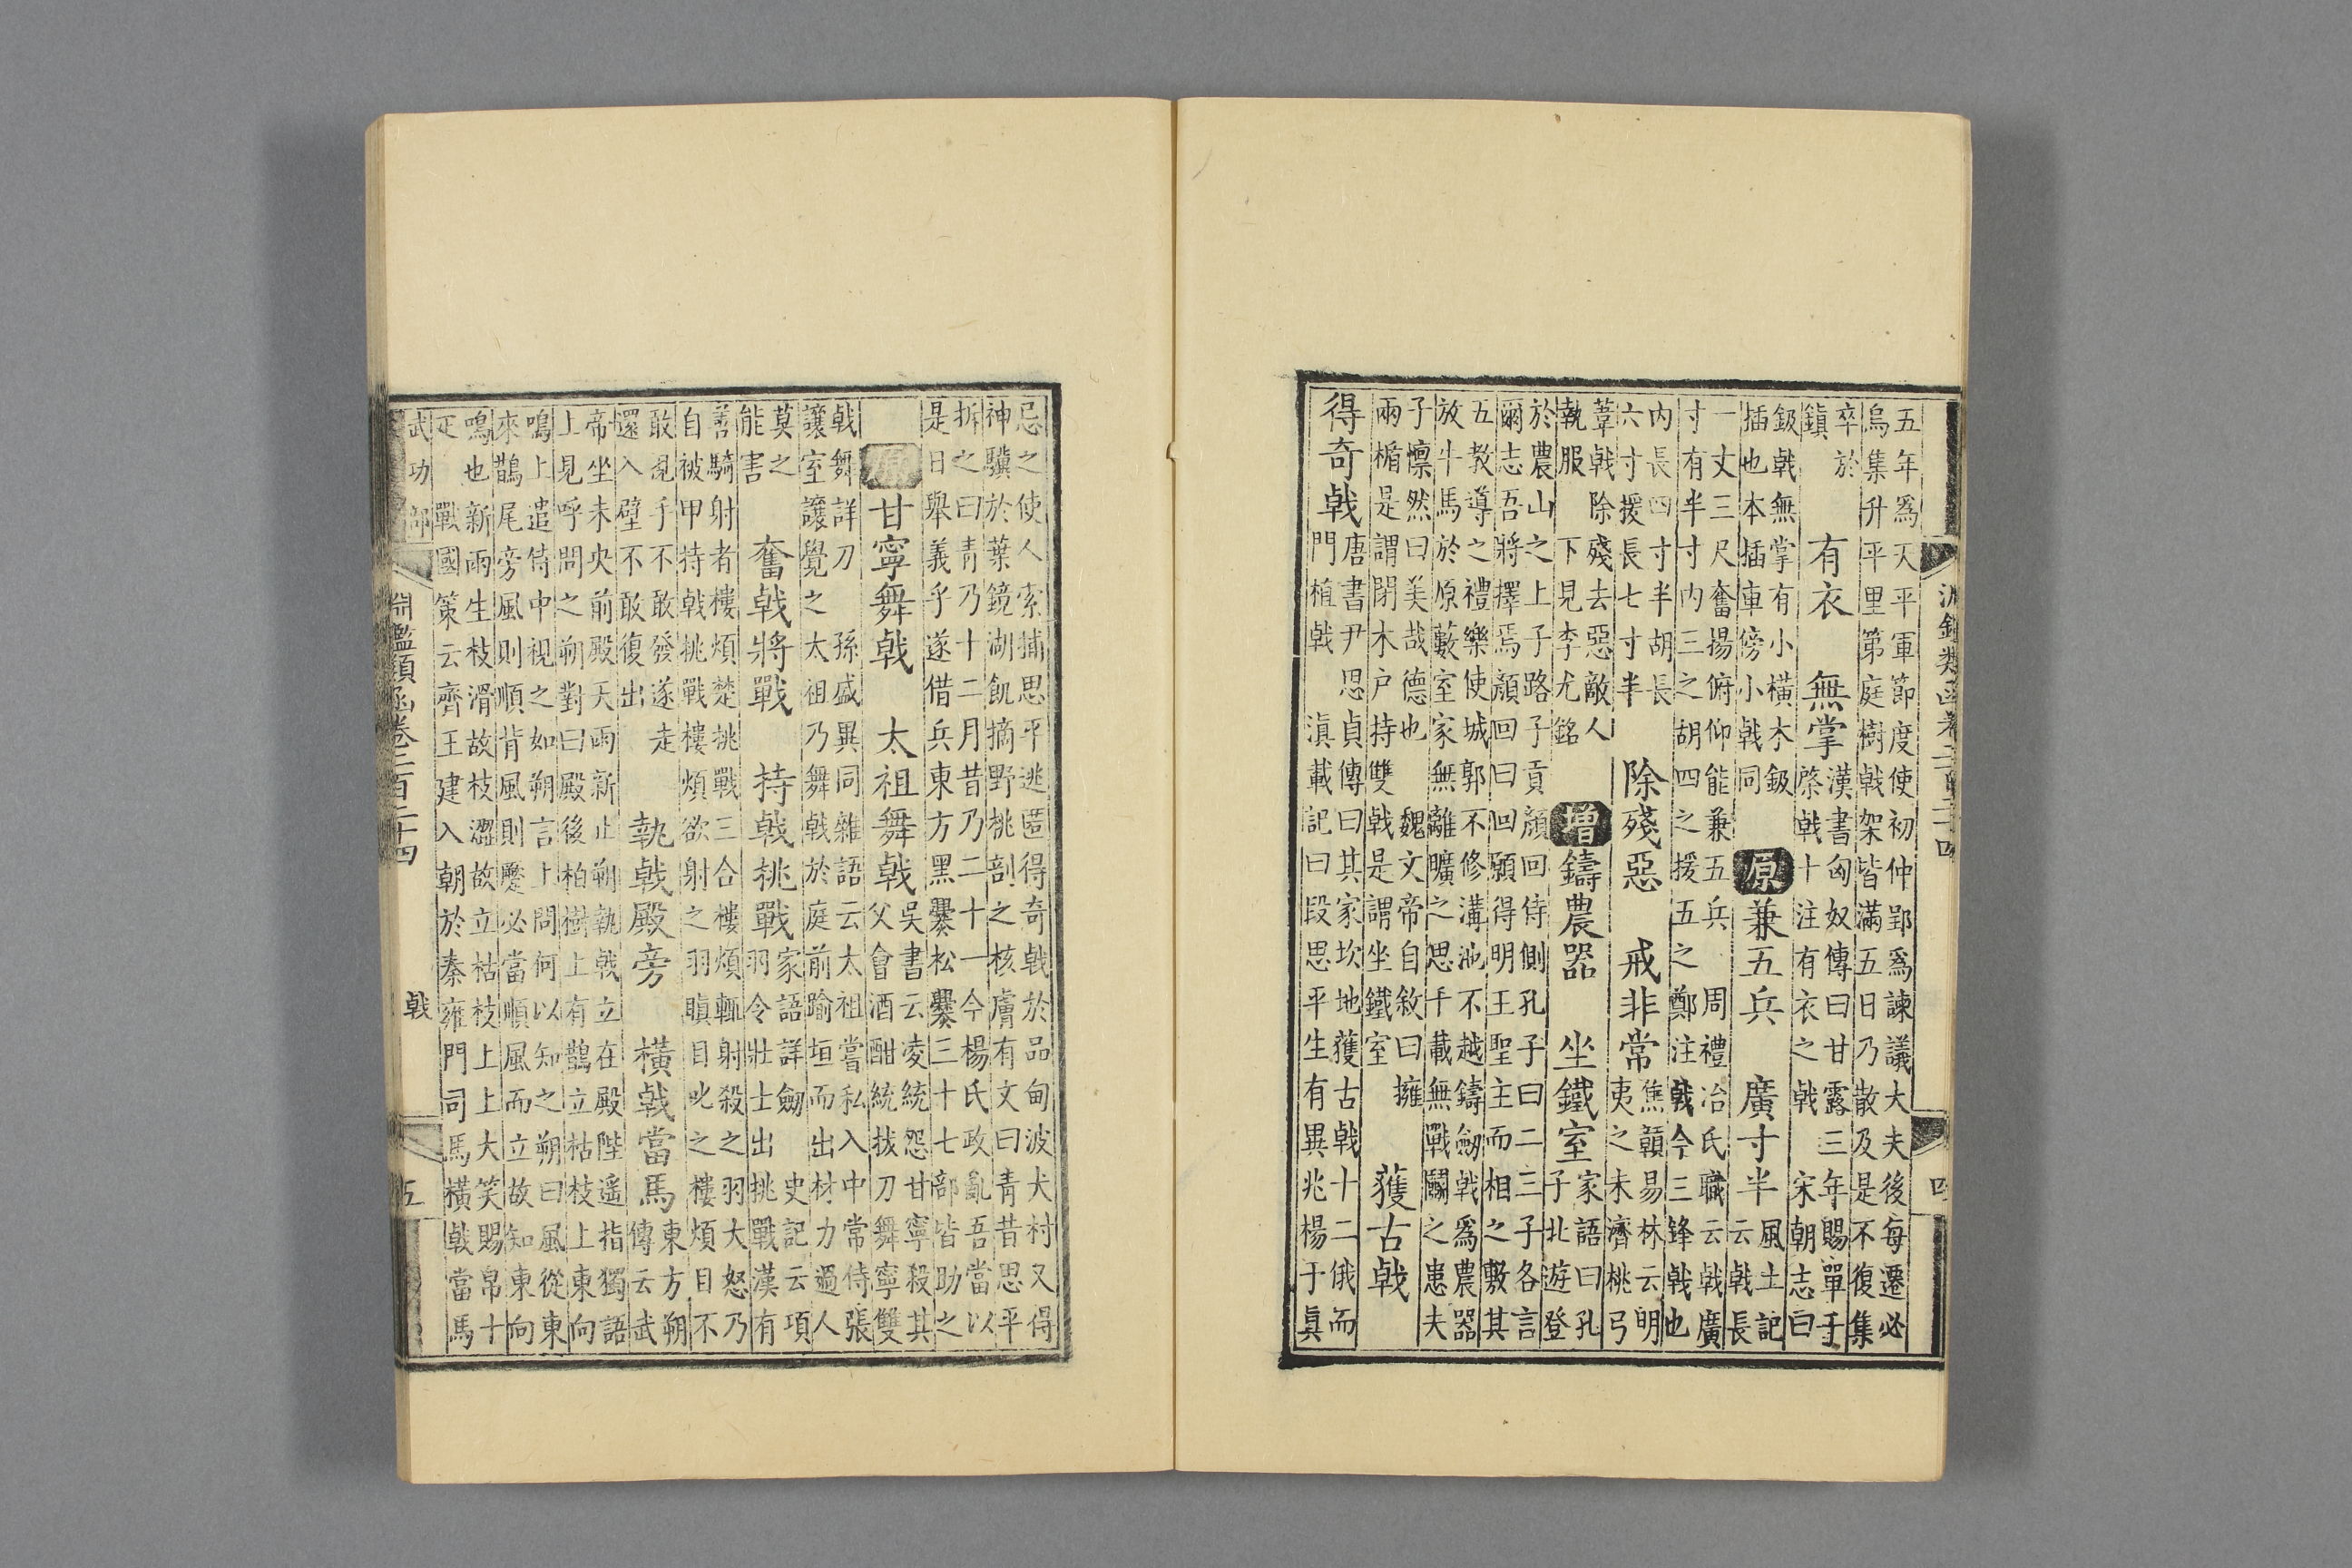 五年爲天平軍節度使初仲郢爲諫議大夫後每遷必
烏集升平里第庭樹戟架皆滿五日乃散及是不復集
卒於
鎮
有衣　無掌
漢書匈奴傳曰甘露三年賜單于
棨戟十注有衣之戟　宋朝志曰
鈒戟無掌有小橫木鈒
插也本插車傍小戟同
原　兼五兵　廣寸半
風土記
云戟長
一丈三尺奮揚俯仰能兼五兵　周禮冶氏職云戟廣
寸有半寸内三之胡四之援五之鄭注戟今三鋒戟也
内長四寸半胡長
六寸援長七寸半
除殘惡　戒非常
焦贛易林云明
夷之未濟桃弓
葦戟除殘去惡敵人
執服　下見李尤銘
增　鑄農器　坐鐵室
家語曰孔
子北遊登
於農山之上子路子貢顔回侍側孔子曰二三子各言
爾志吾將擇焉顔回曰回願得明王聖主而相之敷其
五教導之禮樂使城郭不修溝池不越鑄劒戟爲農器
放牛馬於原藪室家無離曠之思千載無戰鬭之患夫
子凛然曰美哉德也　魏文帝自敘曰擁
兩楯是謂閉木戶持雙戟是謂坐鐵室
獲古戟
得奇戟
唐書尹思貞傳曰其家坎地獲古戟十二俄而
門植戟　滇載記曰段思平生有異兆楊于眞
忌之使人索捕思平逃匿得奇戟於品甸波犬村又得
神驥於葉鏡湖飢摘野桃剖之核膚有文曰青昔思平
拆之曰青乃十二月昔乃二十一今楊氏政亂吾當以
是日舉義乎遂借兵東方黑爨松爨三十七部皆助之
原　甘寧舞戟　太祖舞戟
吳書云凌統怨甘寧殺其
父會酒酣統拔刀舞寧雙
戟舞詳刀
讓室讓覺之
孫盛異同雜語云太祖嘗私入中常侍張
太祖乃舞戟於庭前踰垣而出材力過人
莫之
能害
奮戟將戰　持戟挑戰
家語詳劒　史記云項
羽令壯士出挑戰漢有
善騎射者樓煩楚挑戰三合樓煩輒射殺之羽大怒乃
自被甲持戟挑戰樓煩欲射之羽瞋目叱之樓煩目不
敢視手不敢發遂走
還入壁不敢復出
執戟殿旁　橫戟當馬
東方朔
傳云武
帝坐未央前殿天雨新止朔執戟立在殿陛遥指獨語
上見呼問之朔對曰殿後柏樹上有鵲立枯枝上東向
鳴上遣侍中視之如朔言上問何以知之朔曰風從東
來鵲尾旁風則順背風則蹙必當順風而立故知東向
鳴也新雨生枝滑故枝澀故立枯枝上上大笑賜帛十
疋　戰國策云齊王建入朝於秦雍門司馬橫戟當馬
武功部　淵鑑類函卷二百二十四　戟　五